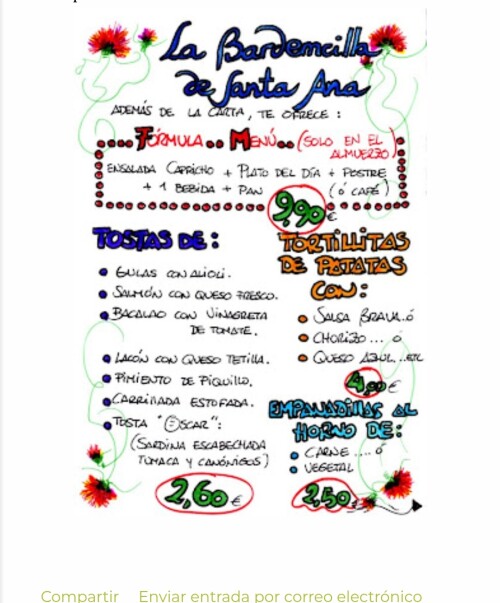 La Bardemcilla
de Santa Ana
ADEMÁS DE LA CARTA, TE OFRECE :
FÓRMULA.. MENÚ.. (SOLO EN EL
ALMUERZO)
ENSALADA CAPRICHO + PLATO DEL DÍA + POSTRE
+ 1 BEBIDA + PAN (Ó CAFÉ)
9,90€
TOSTAS DE :
GULAS CON ALIOLI.
SALMÓN CON QUESO FRESCO.
BACALAO CON VINAGRETA
DE TOMATE.
LACÓN CON QUESO TETILLA.
PIMIENTO DE PIQUILLO.
CARRILLADA ESTOFADA.
TOSTA "ÓSCAR":
(SARDINA ESCABECHADA
TUMACA Y CANÓNIGOS)
2,60€
TORTILLITAS
DE PATATAS
CON :
SALSA BRAVA..Ó
CHORIZO ... Ó
QUESO AZUL...ETC
4,00€
EMPANADILLAS AL
HORNO DE :
CARNE .... Ó
VEGETAL
2,50€
Compartir Enviar entrada por correo electrónico